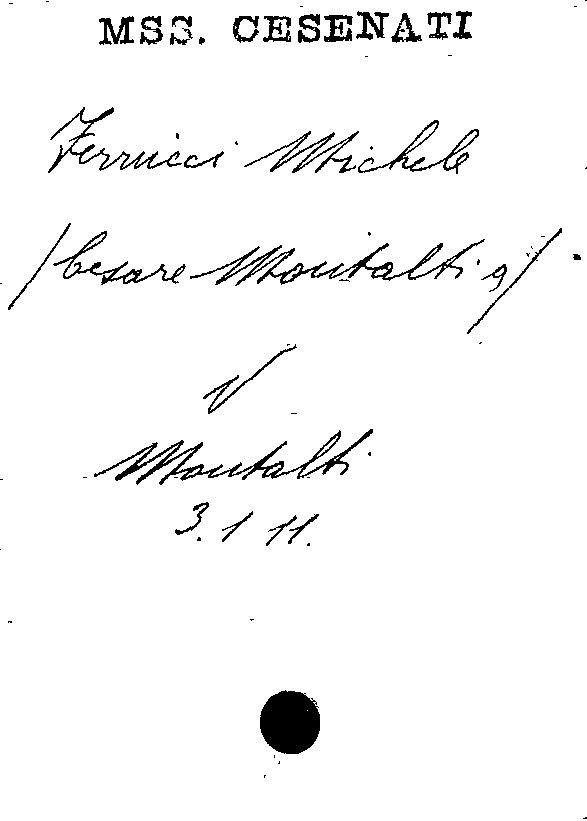 MSS. CESENATI
Ferrucci Michele
/Cesare Montalti a/
V
Montalti
3. 1 11.